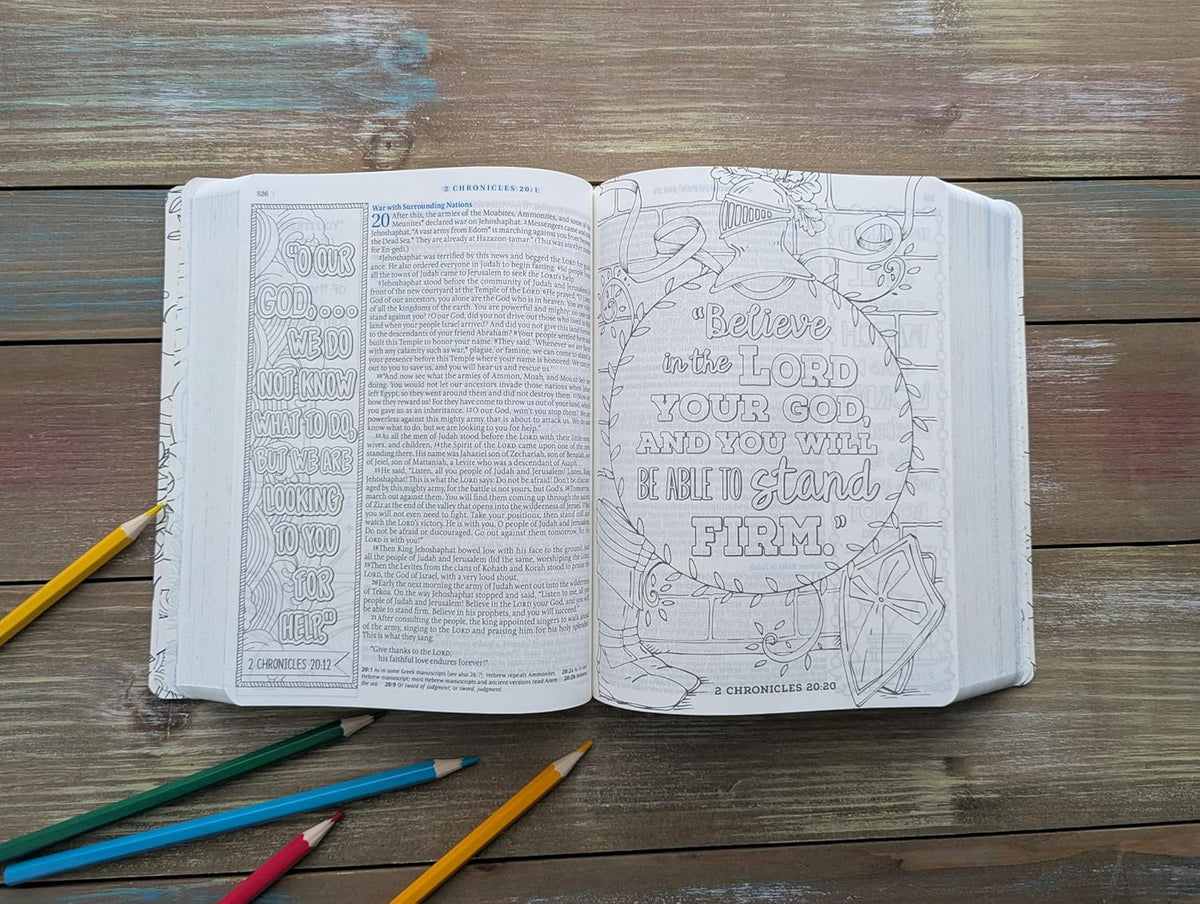 526
2 CHRONICLES 20:1
"O OUR
GOD, ...
WE DO
NOT KNOW
WHAT TO DO,
BUT WE ARE
LOOKING
TO YOU
FOR
HELP."
2 CHRONICLES 20:12
War with Surrounding Nations
20 After this, the armies of the Moabites, Ammonites, and some of the
Meunites* declared war on Jehoshaphat. 2Messengers came and
Jehoshaphat, "A vast army from Edom* is marching against you from beyond
the Dead Sea.* They are already at Hazazon-tamar." (This was another
for En-gedi.)
3Jehoshaphat was terrified by this news and begged the LORD for
ance. He also ordered everyone in Judah to begin fasting. 4So people
all the towns of Judah came to Jerusalem to seek the LORD's help.
5Jehoshaphat stood before the community of Judah and Jerusalem
front of the new courtyard at the Temple of the LORD. 6He prayed, "O LORD,
God of our ancestors, you alone are the God who is in heaven. You are
of all the kingdoms of the earth. You are powerful and mighty; no one
stand against you! 7O our God, did you not drive out those who lived in
land when your people Israel arrived? And did you not give this land
to the descendants of your friend Abraham? 8Your people settled here
built this Temple to honor your name. 9They said, 'Whenever we are faced
with any calamity such as war,* plague, or famine, we can come to stand
your presence before this Temple where your name is honored. We can cry
out to you to save us, and you will hear us and rescue us.'
10"And now see what the armies of Ammon, Moab, and Mount Seir are
doing. You would not let our ancestors invade those nations when Israel
left Egypt, so they went around them and did not destroy them. 11Now see
how they reward us! For they have come to throw us out of your land, which
you gave us as an inheritance. 12O our God, won't you stop them? We are
powerless against this mighty army that is about to attack us. We do not
know what to do, but we are looking to you for help."
13As all the men of Judah stood before the LORD with their little ones,
wives, and children, 14the Spirit of the LORD came upon one of the men
standing there. His name was Jahaziel son of Zechariah, son of Benaiah, son
of Jeiel, son of Mattaniah, a Levite who was a descendant of Asaph.
15He said, "Listen, all you people of Judah and Jerusalem! Listen, King
Jehoshaphat! This is what the LORD says: Do not be afraid! Don't be discour-
aged by this mighty army, for the battle is not yours, but God's. 16Tomorrow,
march out against them. You will find them coming up through the ascent
of Ziz at the end of the valley that opens into the wilderness of Jeruel. 17But
you will not even need to fight. Take your positions; then stand still and
watch the LORD's victory. He is with you, O people of Judah and Jerusalem.
Do not be afraid or discouraged. Go out against them tomorrow, for the
LORD is with you!"
18Then King Jehoshaphat bowed low with his face to the ground. And
all the people of Judah and Jerusalem did the same, worshiping the LORD.
19Then the Levites from the clans of Kohath and Korah stood to praise the
LORD, the God of Israel, with a very loud shout.
20Early the next morning the army of Judah went out into the wilderness
of Tekoa. On the way Jehoshaphat stopped and said, "Listen to me, all you
people of Judah and Jerusalem! Believe in the LORD your God, and you will
be able to stand firm. Believe in his prophets, and you will succeed."
21After consulting the people, the king appointed singers to walk ahead
of the army, singing to the LORD and praising him for his holy splendor.
This is what they sang:
"Give thanks to the LORD;
his faithful love endures forever!"
20:1 As in some Greek manuscripts (see also 26:7); Hebrew repeats Ammonites. 20:2a
Hebrew manuscript; most Hebrew manuscripts and ancient versions read Aram. 20:2b Hebrew
the sea. 20:9 Or sword of judgment; or sword, judgment.
"Believe
in the LORD
YOUR GOD,
AND YOU WILL
BE ABLE TO stand
FIRM."
2 CHRONICLES 20:20